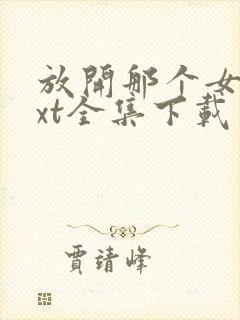 放開那个女
xt全集下載
賈靖峰